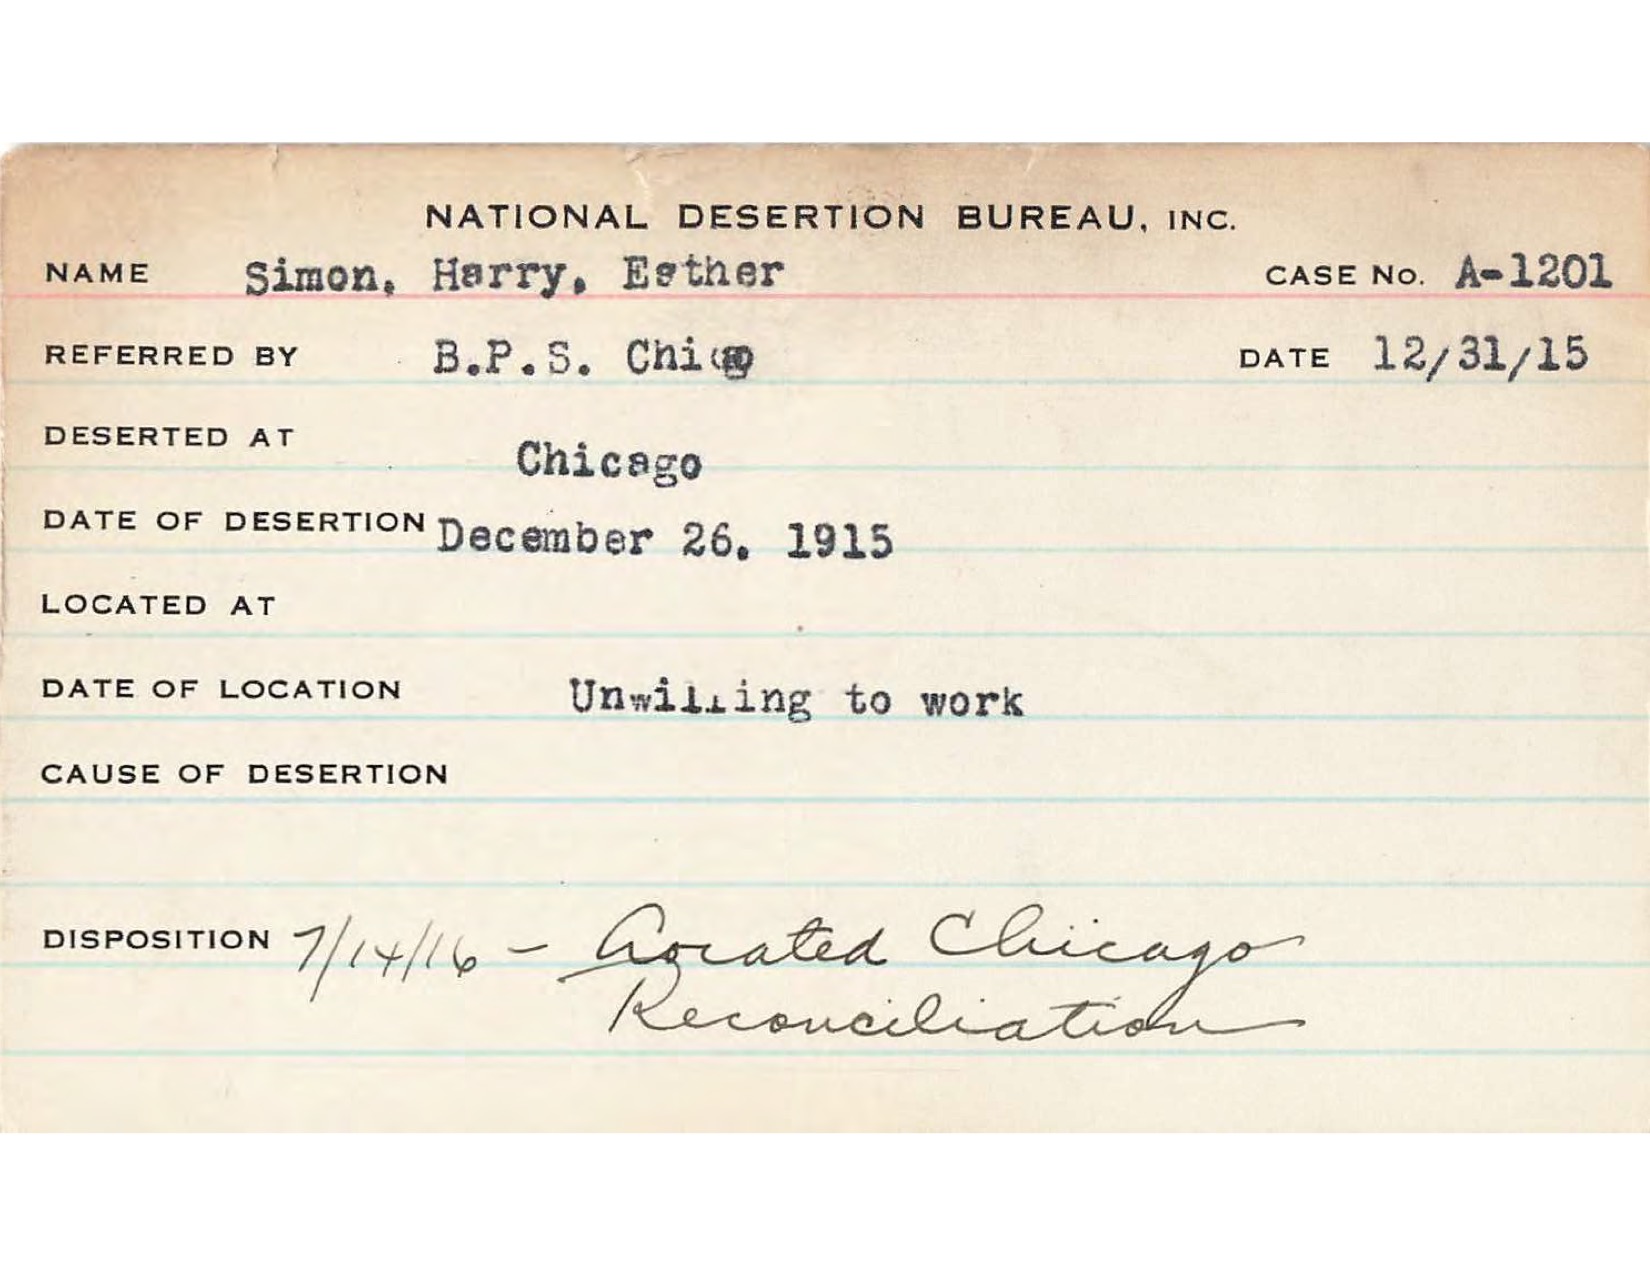 NATIONAL DESERTION BUREAU, INC.
NAME Simon, Harry, Esther CASE No. A-1201
REFERRED BY B.P.S. Chicago DATE 12/31/15
DESERTED AT Chicago
DATE OF DESERTION December 26, 1915
LOCATED AT
DATE OF LOCATION Unwilling to work
CAUSE OF DESERTION
DISPOSITION 7/14/16 - Located Chicago
Reconciliation